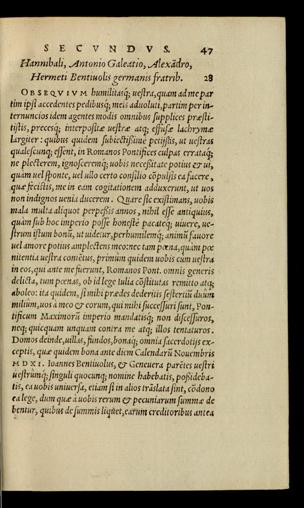 SECVNDVS. 47
Hannibali, Antonio Galeatio, Alexãdro,
Hermeti Bentiuolis germanis fratrib. 28
OBSEQVIVM humilitasq; uestra, quam ad me par
tim ipsi accedentes pedibusq; meis aduoluti, partim per in-
ternuncios idem agentes modis omnibus supplices præsti-
tistis, precesq; interpositæ uestræ atq; effusæ lachrymæ
largiter: quibus quidem subiectissime petistis, ut uestras
qualescunq; essent, in Romanos Pontifices culpas errataq;
ne plecterem, ignosceremq; uobis necessitate potius & ut,
quam uel sponte, uel ullo certo consilio cõpulsis ea facere,
quæ fecistis, me in eam cogitationem adduxerunt, ut uos
non indignos uenia ducerem. Quare sic existimans, uobis
mala multa aliquot perpessis annos, nihil esse antiquius,
quàm sub hoc imperio posse honestè pacateq; uiuere, ue-
strum istum bonũ, ut uidetur, perhumilemq; animũ fauore
uel amore potius amplectens meo: nec tam pœna, quàm pœ
nitentia uestra cõmotus, primùm quidem uobis cùm uestra
in eos, qui ante me fuerunt, Romanos Pont. omnis generis
delicta, tum pœnas, ob id lege tulia cõstitutas remitto atq;
aboleo: ita quidem, si mihi prædes dederitis sestertiũ duûm
milium, uos à meo & eorum, qui mihi successuri sunt, Pon-
tificum Maximorũ imperio mandatisq; non discessuros,
neq; quicquam unquam contra me atq; illos tentaturos.
Domos deinde, uillas, fundos, bonaq; omnia sacerdotijs ex-
ceptis, quæ quidem bona ante diem Calendarũ Nouembris
MDXI. Ioannes Bentiuolus, & Geneuera parẽtes uestri
uestrũmq; singuli quocunq; nomine habebatis, possideba-
tis, ea uobis uniuersa, etiam si in alios trãslata sint, cõdono
ea lege, dum quæ à uobis rerum & pecuniarum summæ de
bentur, quibus de summis liquet, earum creditoribus antea